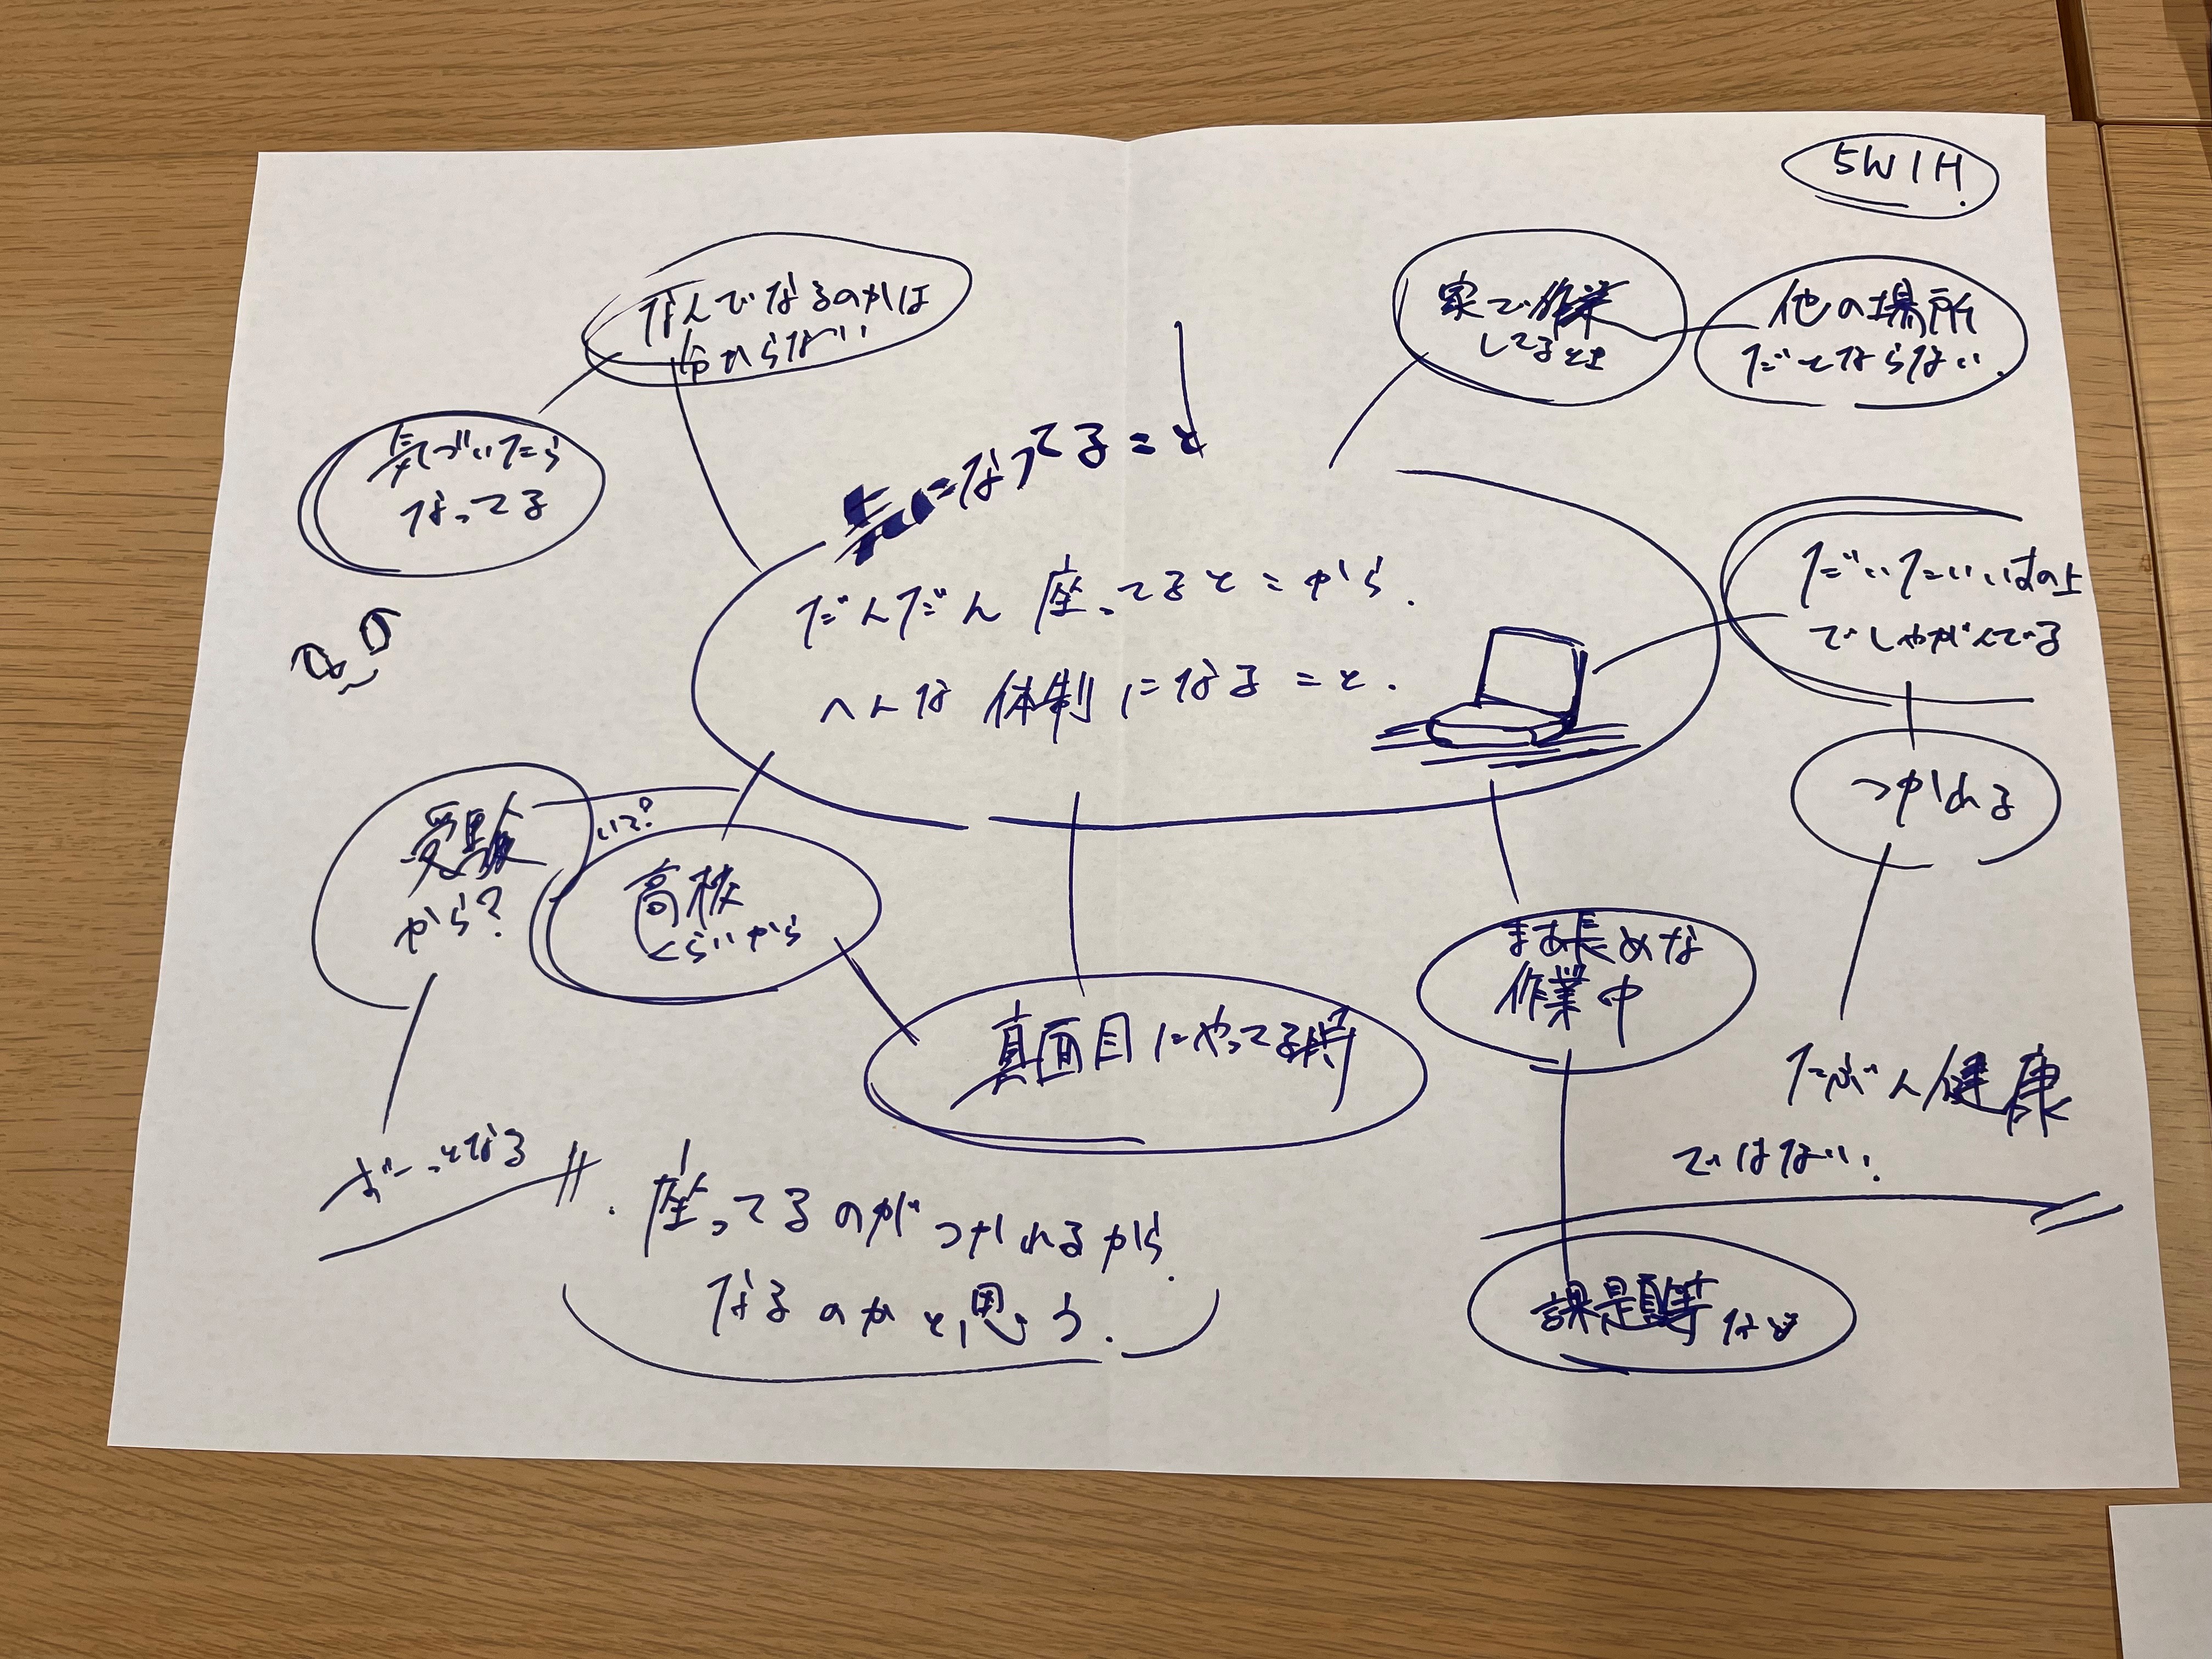 5W1H.
なんでなるのかは
分からない
家で作業
してるとき
他の場所
だとならない.
気づいたら
なってる
気になってること
だんだん 座ってるとこから.
へんな 体制になること.
だいたいいすの上
でしゃがんでいる
つかれる
受験
から?
いつ?
高校
くらいから
真面目にやってる時
まあ長めな
作業中
たぶん健康
ではない.
ぼーっとなる
座ってるのがつかれるから
なるのかと思う.
課題等など